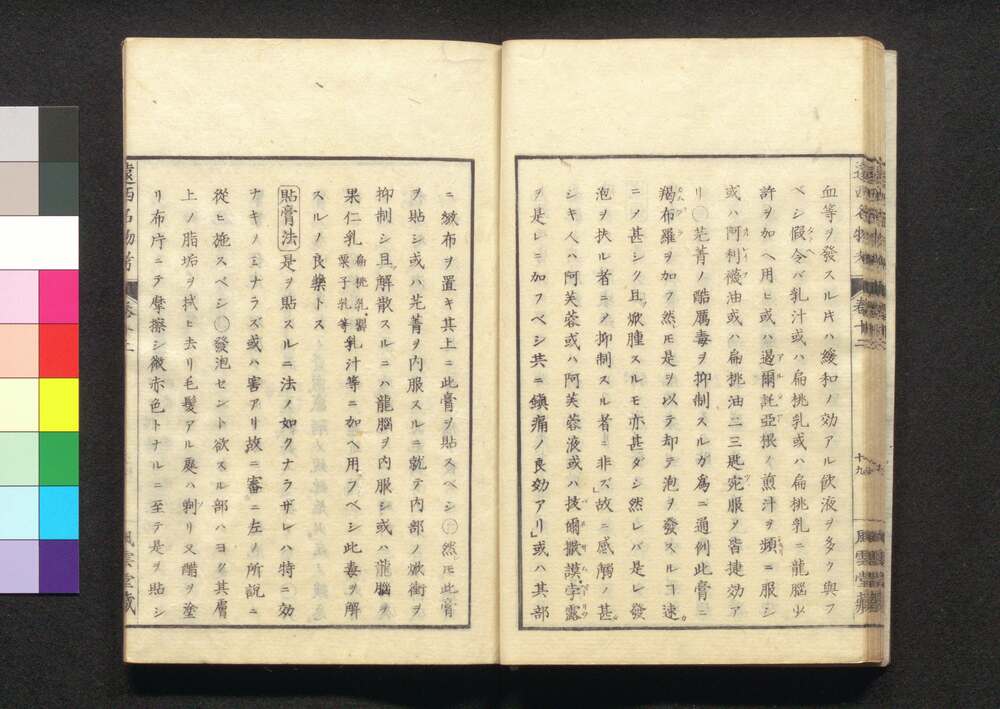 血等ヲ發スル片ハ緩和ノ効アル飲液ヲ多ク與フ
ベシ假令バ乳汁或ハ扁桃乳或ハ扁桃乳ニ龍腦少
許ヲ加ヘ用ヒ或ハ過爾託亞根ノ煎汁ヲ頻ニ服シ
或ハ阿利襪油或ハ扁桃油二三匙宛服ヲ皆捷効ア
リ○芫菁ノ酷厲毒ヲ抑制スルガ爲ニ通例此膏ニ
羯布羅ヲ加フ然モ是ヲ以テ却テ泡ヲ發スルヿ速
ニメ甚シク且焮腫スルモ亦甚ダシ然レバ是レ發
泡ヲ扶ル者ニメ抑制スル者ニ非ズ」故ニ感觸ノ甚
シキ人ハ阿芙蓉或ハ阿芙蓉液或ハ拔爾撒謨孛露
ヲ是レニ加フベシ共ニ鎮痛ノ良効アリ」或ハ其部
遠西名物考 卷十二 十九 風雲堂藏
ニ紱布ヲ置キ其上ニ此膏ヲ貼スベシ○然モ此膏
ヲ貼シ或ハ芫菁ヲ内服スルニ就テ内部ノ焮衝ヲ
抑制シ且解散スルニハ龍腦ヲ内服シ或ハ龍腦ヲ
果仁乳 扁桃乳罌粟子乳等 乳汁等ニ加ヘ用フベシ此毒ヲ解
スルノ良藥トス
貼膏法 是ヲ貼スルニ法ノ如クナラザレハ特ニ効
ナキノミナラズ或ハ害アリ故ニ審ニ左ノ所說ニ
從ヒ施スベシ○發泡セント欲スル部ハヨク其層
上ノ脂垢ヲ拭ヒ去リ毛髮アル處ハ剃リ又醋ヲ塗
リ布片ニテ摩擦シ微赤色トナルニ至テ是ヲ貼シ
遠西名物考 卷十二 風雲堂藏